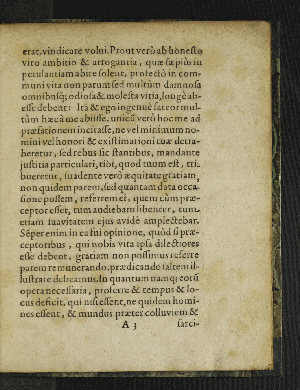 erat, vindicare volui. Prout verò ab honesto
viro ambitio & arrogantia, quæ sæpius in
petulantiam abire solent, profectò in com-
muni vita non parum sed multùm damnosa
omnibusq; odiosa & molesta vitia, longè ab-
esse debent: Ita & ego ingenuè fateor mul-
tùm hæc à me abfuisse. unicū verò hoc me ad
præfationem incitasse, ne vel minimum no-
mini vel honori & existimationi tuæ detra-
heretur, sed rebus sic stantibus, mandante
justitia particulari, tibi, quod tuum est, tri-
bueretur, suadente verò æquitate gratiam,
non quidem parem, sed quantam data occa-
sione possem, referrem ei, quem cùm præ-
ceptor esset, tum audiebam libenter, tum
etiam suavitatem ejus avidè amplectebar.
Sēper enim in ea fui opinione, quòd si præ-
ceptoribus, qui nobis vita ipsa dilectiores
esse debent, gratiam non possimus referre
parem remunerando, prædicando saltem il-
lustrare debeamus. In quantum namq; eorū
opera necessaria, proferre & tempus & lo-
cus deficit, qui nisi essent, ne quidem homi-
nes essent, & mundus præter colluviem &
A 3 sarci-